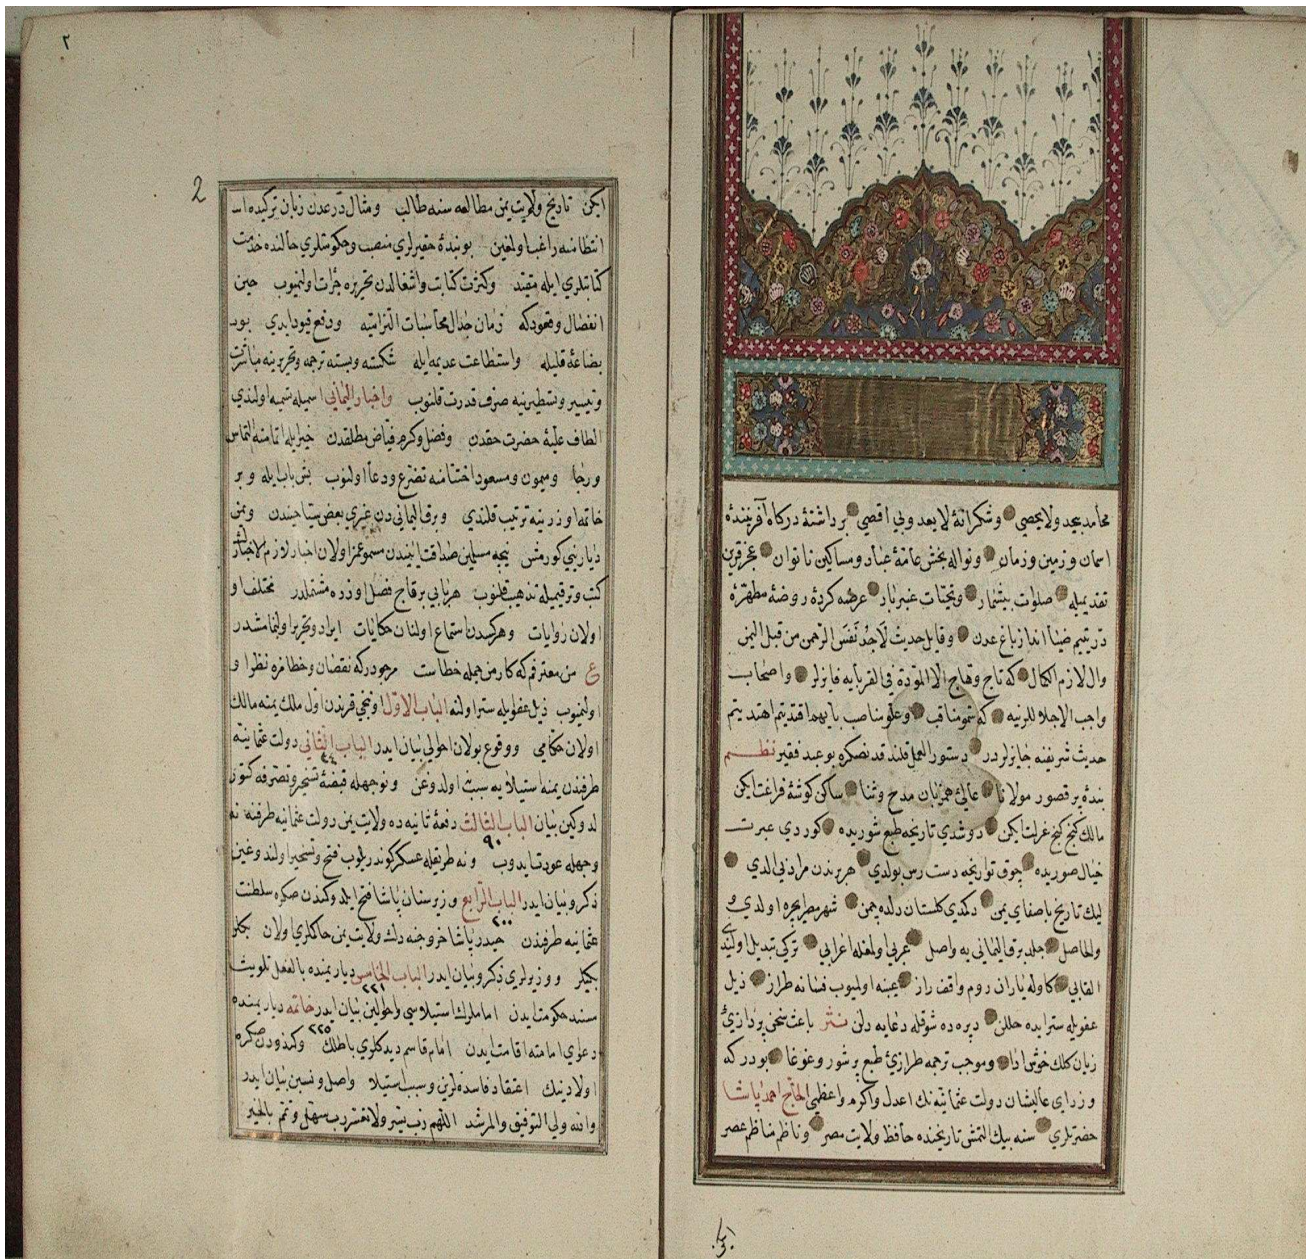 محامد بيحد ولا يحصی وشكرانهٔ لا يعد وبی اقصی برداشتهٔ درگاه آفرينندهٔ
اسمان وزمين وزمان ونواله بخش عامهٔ عباد ومساكين ناتوان عجز قرين
تقديميله صلوات بيشمار وتحيات عنبربار عرضه كردهٔ روضهٔ مطهرهٔ
در يتيم ضيا انداز باغ عدن وقايل حديث لاجد نفس الرحمن من قبل اليمن
وال لازم الكمال كه تاج وهاج الا المودة فی القربايه فايزلر واصحاب
واجب الاجلاللرينه كه سمو مناقب وعلو مناصب بايهم اقتديتم اهتديتم
حديث شريفنه جايزلردر دستور العمل قلندقدنصكره بو عبد فقير نظم
بندهٔ پر قصور مولانا همزبان مدح وثنا ساكن كوشهٔ فراغت ايكن
مالك كنج كنج عزلت ايكن دوشدی تاريخه طبع شوريده كوردی عبرت
خيال صوريده چوق تواريخه دست رس بولدی هر برندن مرادنی الدی
ليك تاريخ باصفای يمن دكدی كلستان دلده چمن شهر مصر ايچره اولدی و
والحاصل جلد برق اليمانی يه واصل عربی اولمغله اعرابی تركی تبديل اولندی
القابی كاوله ياران روم واقف راز عيبنه اولميوب فسانه طراز ذيل
عفويله ستر ايده خللن ديره ده شوقله دعايه دلن نثر باعث سخن پردازیٔ
زبان كلك خوش ادا وموجب ترجمه طرازیٔ طبع پر شور وغوغا بودر كه
وزرای عاليشان دولت عثمانيه نك اعدل واكرم واعظمی الحاج احمد پاشا
حضرتلری سنه بيك التمش تاريخنده حافظ ولايت مصر وناظم مناظم عصر
ايكن
٢
2
ايكن تاريخ ولايت يمن مطالعه سنه طالب ومثال در عدن زبان تركيده
انتظامنه راغب اولمغين بو بندهٔ حقيرلری منصب وحكومتلری حالنده خدمت
كتابتلری ايله مقيد وكثرت كتابت واشغالدن تحريره جرات اولنميوب حين
انفصال وقعودكه زمان جدال محاسبات التزاميه ودفع قيود ايدی بو
بضاعهٔ قليله واستطاعت عديمه ايله شكسته وبسته ترجمه وتحريرينه مباشرت
وتيسير وتسطيرينه صرف قدرت قلنوب واخبار اليمانی اسميله تسميه اولندی
الطاف عليهٔ حضرت حقدن وفضل وكرم فياض مطلقدن خيرايله اتمامنه التماس
ورجا وميمون ومسعود اختتامنه تضرع ودعا اولنوب بش باب ايله و بر
خاتمه اوزرينه ترتيب قلندی وبرق اليمانی دن غيری بعض ستاجندن ويمن
ديارينی كورمش نيجه مسلمين صداقت ايبندن مسموعمز اولان اخبار لازم الاخبار
كتب وترقيميله تذهيب قلنوب هر بابی برقاچ فصل اوزره مشتملدر مختلف
اولان روايات وهر كسدن استماع اولنان حكايات ايراد وتحرير اولنمامشدر
ع من معترفم كه كار من جمله خطاست مرجودر كه نقصان وخطامزه نظر
اولنميوب ذيل عفويله ستر اولنه الباب الاول اون ننجی قرنده اول ملك يمنه مالك
اولان حكامی ووقوع بولان احوالی بيان ايدر الباب الثانی دولت عثمانيه
٤٤
طرفندن يمنه استيلايه سبب اولدوغن ونوجهله قبضهٔ تسخير وتصرفه كتور
لدوكين بيان الباب الثالث دفعهٔ ثانيه ده ولايت يمن دولت عثمانيه طرفنه نه
٩٠
وجهله عودت ايدوب ونه طريقله عسكر كوندريلوب فتح وتسخير اولندوغين
ذكر وبيان ايدر الباب الرابع وزير سنان پاشا فتح ايلدوكندن صكره سلطنت
٢٠٠
عثمانيه طرفندن حيدر پاشا خروجنه دك ولايت يمن حاكملری اولان بكلر
بكيلر ووزيرلری ذكر وبيان ايدر الباب الخامس ديار يمنده بالفعل تلويث
٢٢١
مسند حكومت ايدن اماملرك استيلاسی واحوالين بيان ايدر خاتمه ديار يمنده
٢٢٥
دعوای امامته اقامت ايدن امام قاسم ديدكلری باطلك وكندودن صكره
اولادينك اعتقاد فاسده لرين وسبب استيلا واصل ونسبن بيان ايدر
والله ولی التوفيق والمرشد اللهم رب يسر ولا تعسر رب سهل وتمم بالخير